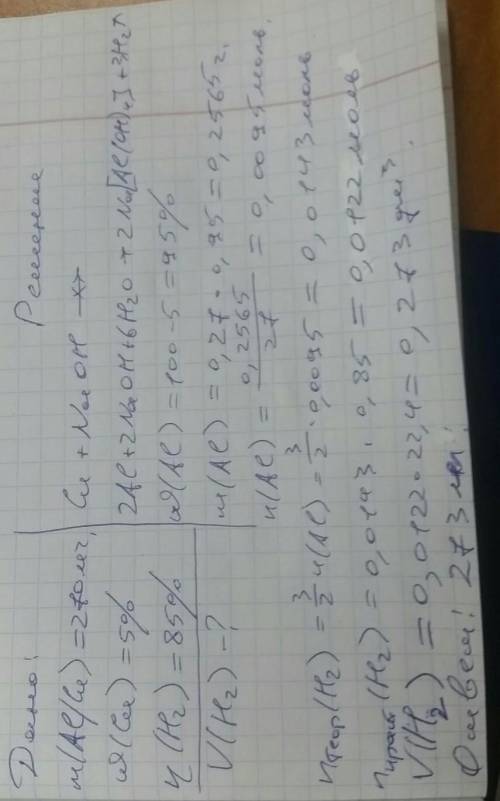 Дано:
m(Al/Cu) = 270 мг,
ω(Cu) = 5%
η(H₂) = 85%
V(H₂) - ?
Решение
Cu + NaOH ↛
2Al + 2NaOH + 6H₂O → 2Na[Al(OH)₄] + 3H₂↑
ω(Al) = 100 - 5 = 95%
m(Al) = 0,27 · 0,95 = 0,2565 г.
n(Al) = 0,2565/27 = 0,0095 моль.
nтеор(H₂) = 3/2 n(Al) = 3/2 · 0,0095 = 0,0143 моль
nпракт(H₂) = 0,0143 · 0,85 = 0,0122 моль
V(H₂) = 0,0122 · 22,4 = 0,273 дм³.
Ответ: 273 мл.